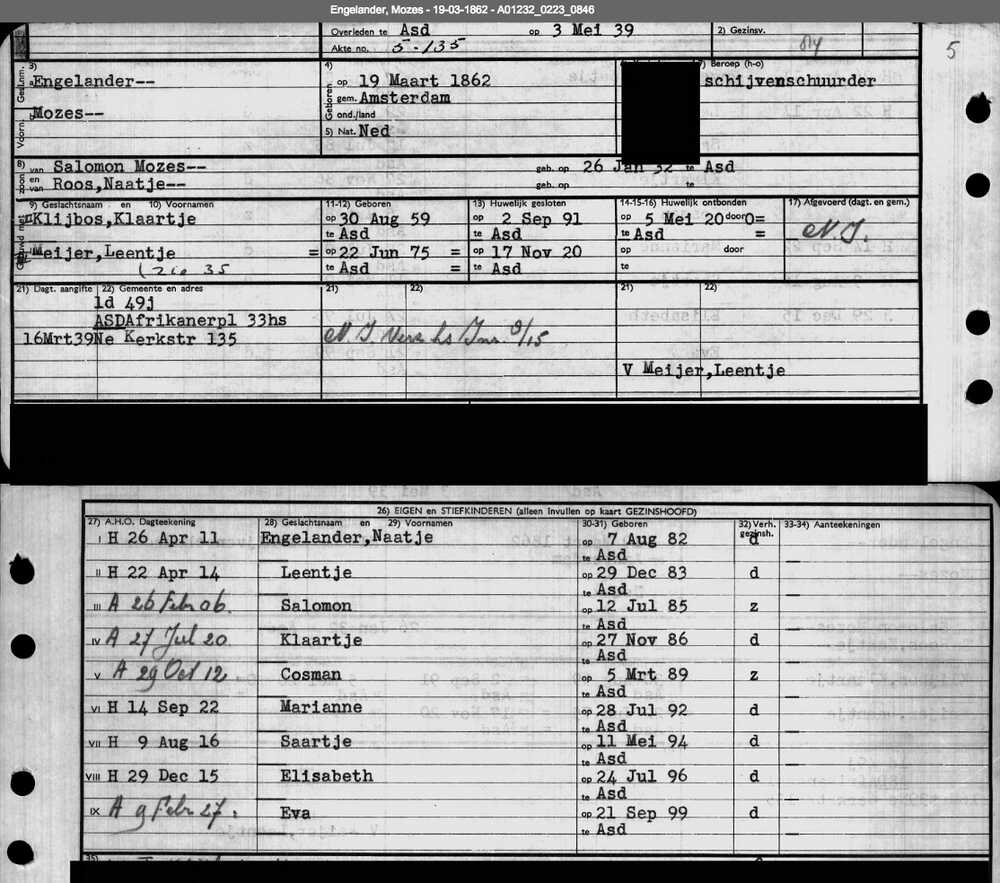 Engelander, Mozes - 19-03-1862 - A01232_0223_0846
Overleden te Asd op 3 Mei 39 2) Gezinsv.
Akte no. 5-135
5
3) Engelander-- 4) op 19 Maart 1862 7) Beroep (h-o)
Geslnm. gem. Amsterdam schijvenschuurder
Voorn. Mozes-- Geboren ond./land
5) Nat. Ned
8) van Salomon Mozes-- geb. op 26 Jan 32 te Asd
zoon en van Roos,Naatje-- geb. op te
9) Geslachtsnaam en 10) Voornamen 11-12) Geboren 13) Huwelijk gesloten 14-15-16) Huwelijk ontbonden 17) Afgevoerd (dagt. en gem.)
Klijbos,Klaartje = op 30 Aug 59 = op 2 Sep 91 op 5 Mei 20 door O=
te Asd te Asd te Asd = N.I.
Meijer,Leentje = op 22 Jun 75 = op 17 Nov 20 op door
(zie 35 te Asd = te Asd te
21) Dagt. aangifte 22) Gemeente en adres 21) 22) 21) 22)
1d 49j
ASD Afrikanerpl 33hs
16Mrt39 Ne Kerkstr 135
V Meijer,Leentje
26) EIGEN en STIEFKINDEREN (alleen invullen op kaart GEZINSHOOFD)
27) A.H.O. Dagteekening 28) Geslachtsnaam en 29) Voornamen 30-31) Geboren 32) Verh. gezinsh. 33-34) Aanteekeningen
I H 26 Apr 11 Engelander,Naatje op 7 Aug 82 d
te Asd
II H 22 Apr 14 Leentje op 29 Dec 83 d
te Asd
III A 26 Febr 06. Salomon op 12 Jul 85 z
te Asd
IV A 27 Jul 20 Klaartje op 27 Nov 86 d
te Asd
V A 29 Oct 12 Cosman op 5 Mrt 89 z
te Asd
VI H 14 Sep 22 Marianne op 28 Jul 92 d
te Asd
VII H 9 Aug 16 Saartje op 11 Mei 94 d
te Asd
VIII H 29 Dec 15 Elisabeth op 24 Jul 96 d
te Asd
IX A 9 Febr 27. Eva op 21 Sep 99 d
te Asd
35)